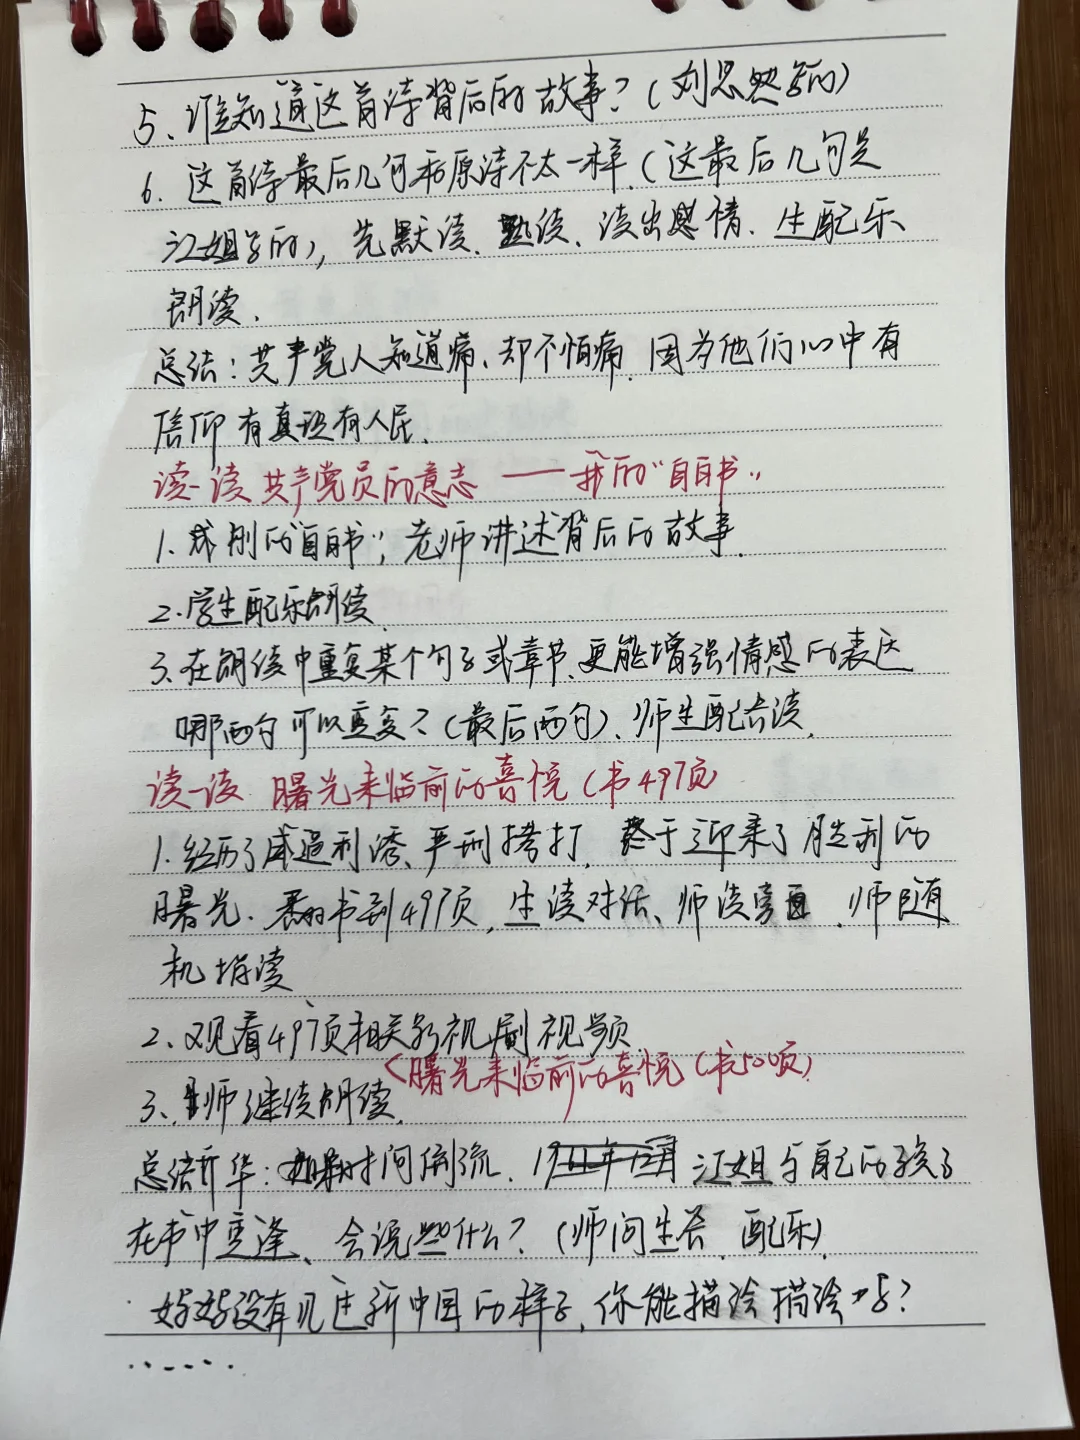 5、谁知道这首诗背后的故事？（刘思然写的）
6、这首诗最后几句和原诗不太一样.（这最后几句是
江姐写的），先默读、熟读、读出感情、生配乐
朗读.
总结：共产党人知道痛、却不怕痛.因为他们心中有
信仰有真理有人民.
读一读 共产党员的意志 —— 我的“自白书”
1、成刚的“自白书”；老师讲述背后的故事.
2、学生配乐朗读.
3、在朗读中重复某个句子或章节、更能增强情感的表达
哪两句可以重复？（最后两句）、师生配合读.
读一读 曙光来临前的喜悦（书497页）
1、经历了威逼利诱、严刑拷打，终于迎来了胜利的
曙光.翻书到497页，生读对话、师读旁白，师随
机指读
2、观看497页相关影视剧视频.
<曙光来临前的喜悦（书500页）
3、师继续朗读.
总结升华：如果时间倒流.江姐与自己的孩子
在书中重逢、会说些什么？（师问生答、配乐）.
她没有见过新中国的样子，你能描绘描绘吗？
......